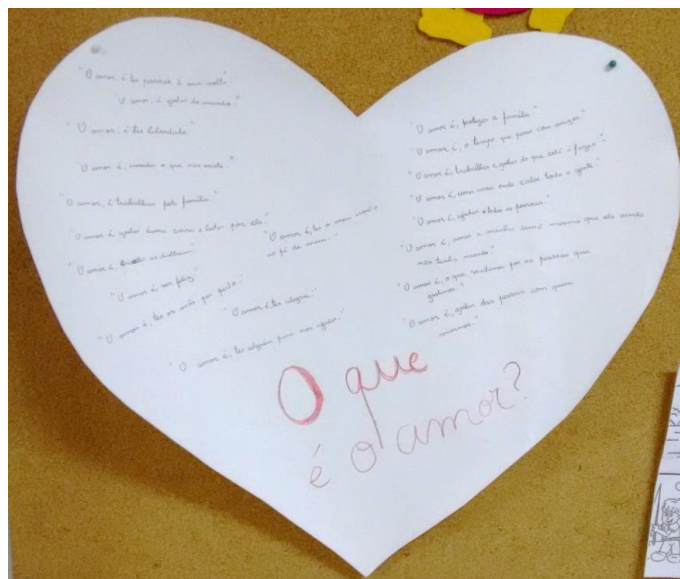 "O amor, é ter pessoas à sua volta."
"O amor, é gostar do mundo."
"O amor, é ter liberdade."
"O amor, é, o que não existe."
"O amor, é trabalhar pela família."
"O amor, é, gostar duma coisa e lutar por ela."
"O amor é, as mulheres"
"O amor é, ser feliz"
"O amor é, ter os pais por perto."
"O amor é, ter o meu irmão
ao pé de mim."
"O amor é, ter alegria."
"O amor é, ter alguém para nos ajudar."
"O amor é, proteger a família."
"O amor é, o tempo que passo com amigos."
"O amor é, trabalhar e gostar do que está a fazer."
"O amor é, uma casa onde cabe toda a gente."
"O amor é, ajudar todas as pessoas."
"O amor é, amar a minha irmã mesmo que ela ainda
não tenha nascido."
"O amor é, o que sentimos por as pessoas que
gostamos."
"O amor é, gostar das pessoas com quem
vivemos."
O que
é o amor?